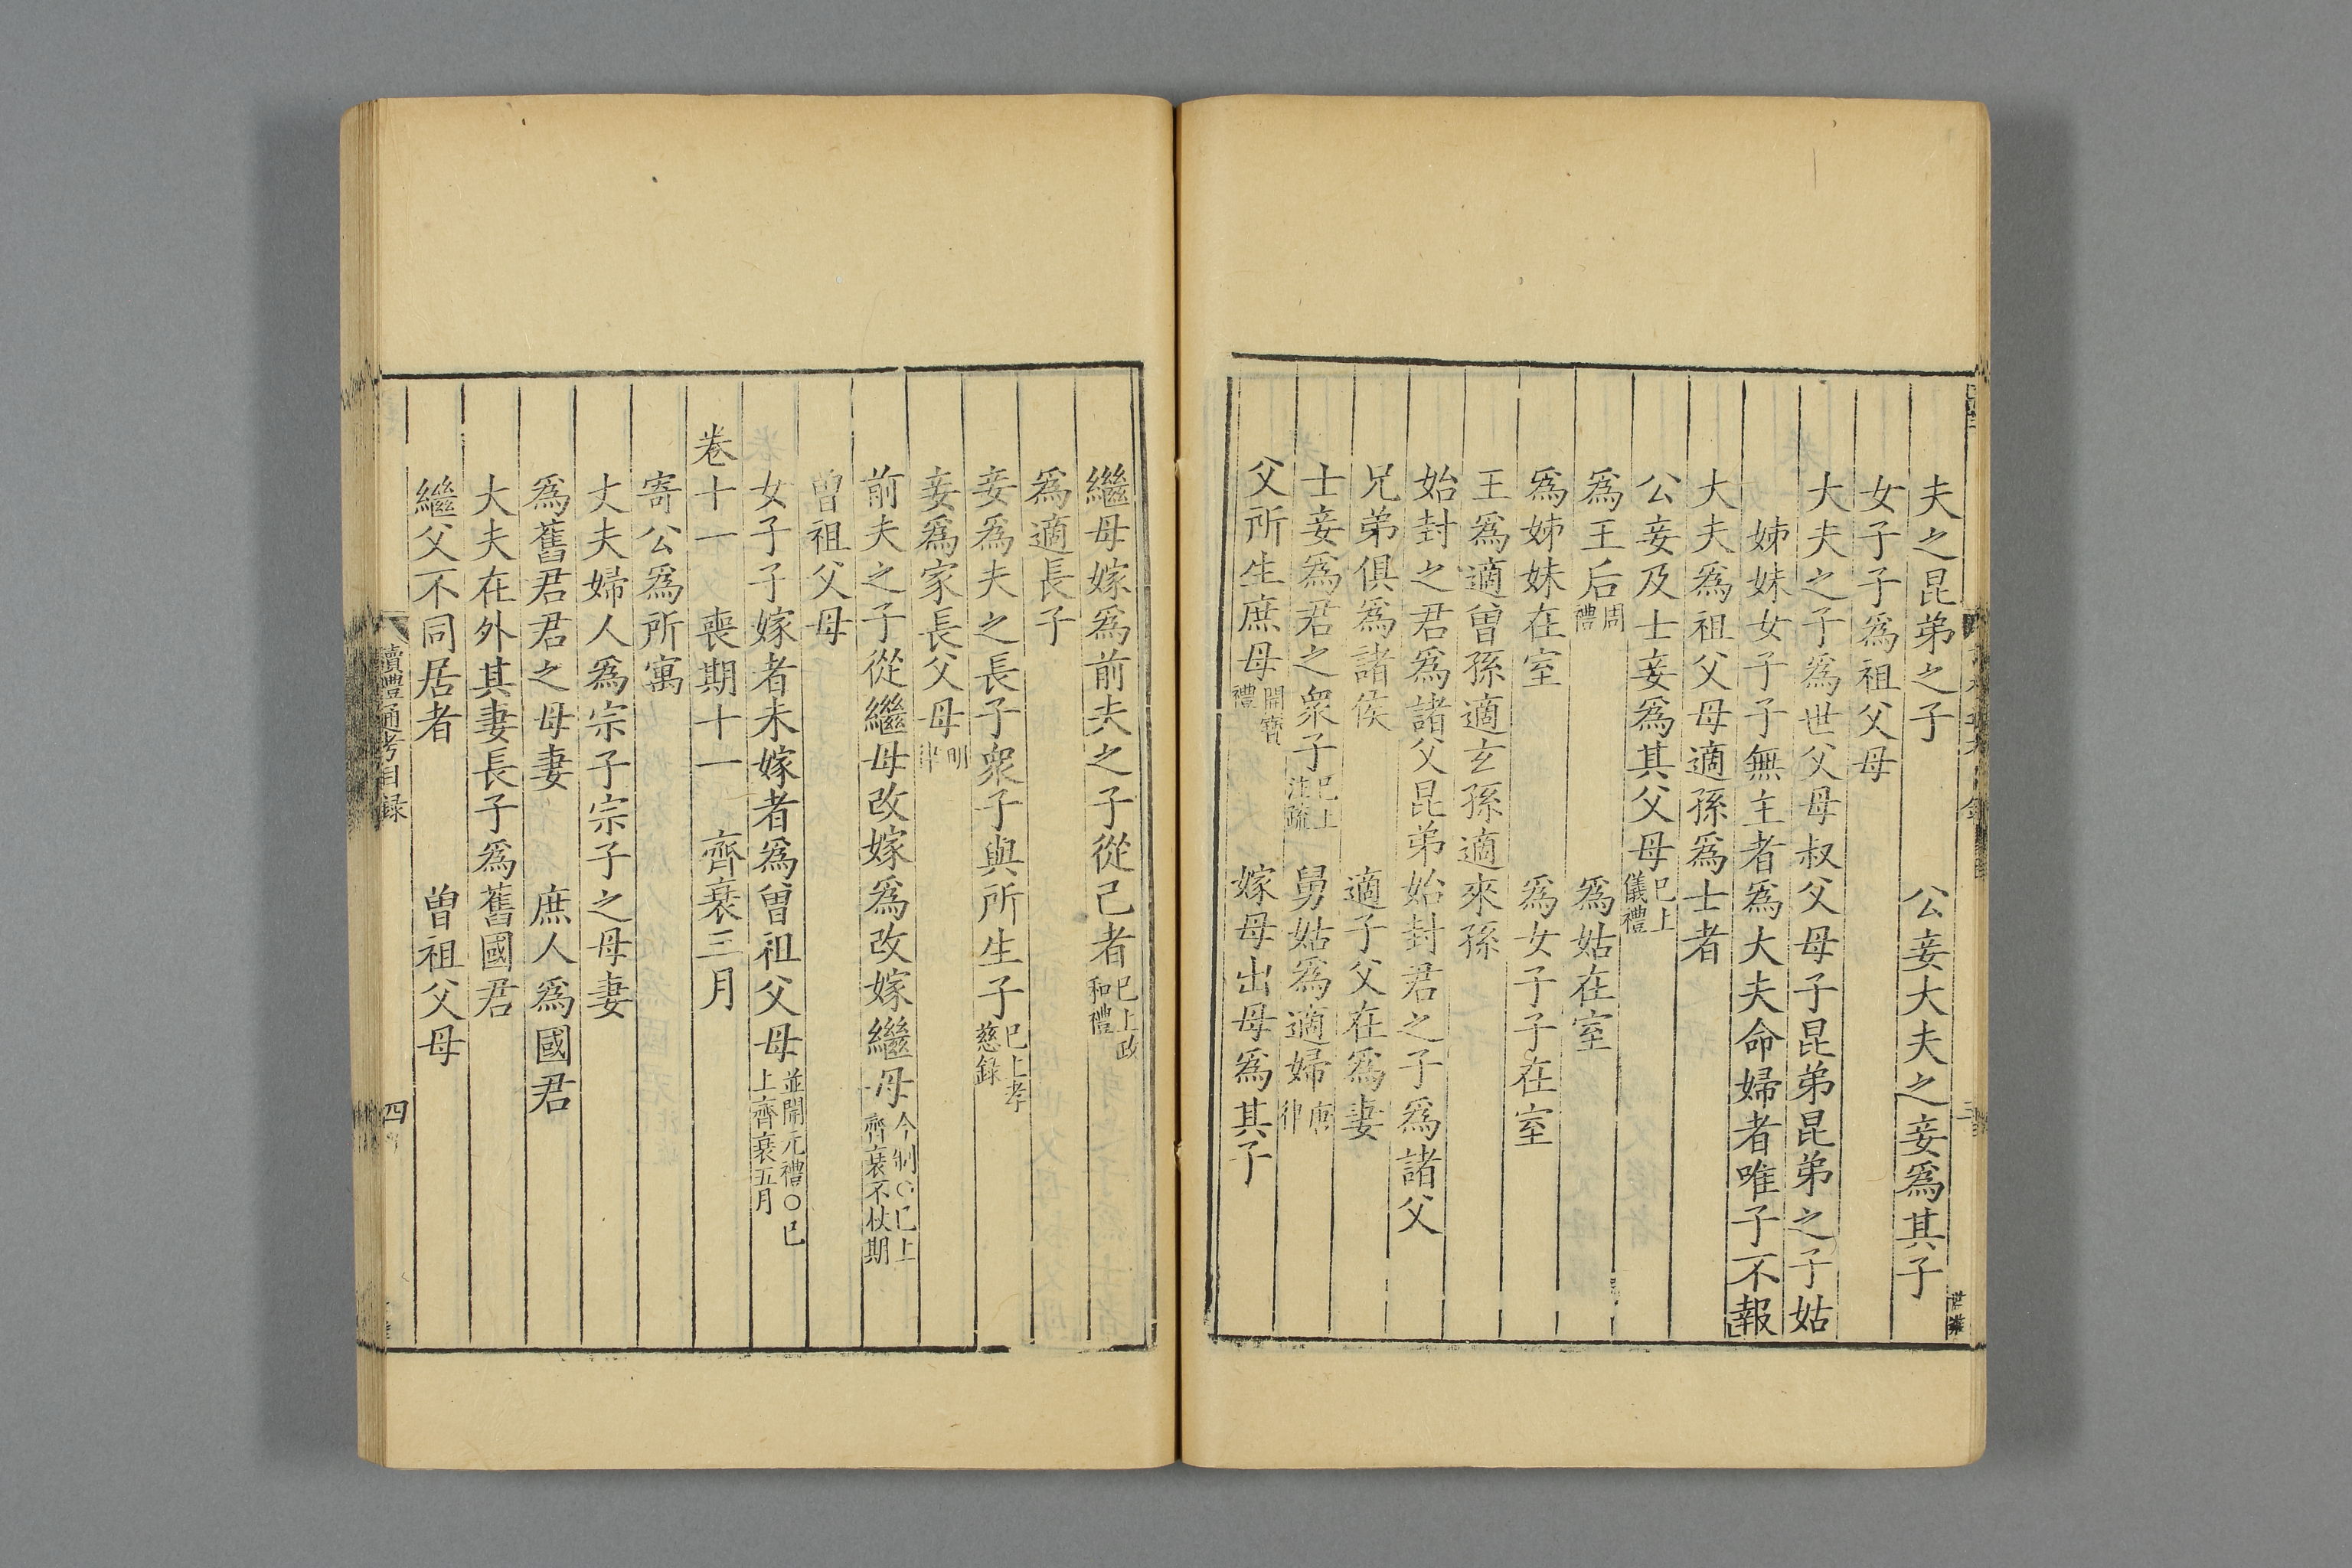 夫之昆弟之子　公妾大夫之妾爲其子
女子子爲祖父母
大夫之子爲世父母叔父母子昆弟昆弟之子姑
姊妹女子子無主者爲大夫命婦者唯子不報
大夫爲祖父母適孫爲士者
公妾及士妾爲其父母已上儀禮
爲王后周禮　爲姑在室
爲姊妹在室　爲女子子在室
王爲適曾孫適玄孫適來孫
始封之君爲諸父昆弟始封君之子爲諸父
兄弟俱爲諸侯　適子父在爲妻
士妾爲君之衆子已上注疏　舅姑爲適婦唐律
父所生庶母開寶禮　嫁母出母爲其子
三
世業
繼母嫁爲前夫之子從己者已上政和禮
爲適長子
妾爲夫之長子衆子與所生子已上孝慈錄
妾爲家長父母明律
前夫之子從繼母改嫁爲改嫁繼母今制○已上齊衰不杖期
曾祖父母
女子子嫁者未嫁者爲曾祖父母並開元禮○已上齊衰五月
卷十一　喪期十一　齊衰三月
寄公爲所寓
丈夫婦人爲宗子宗子之母妻
爲舊君君之母妻　庶人爲國君
大夫在外其妻長子爲舊國君
繼父不同居者　曾祖父母
讀禮通考目録
四